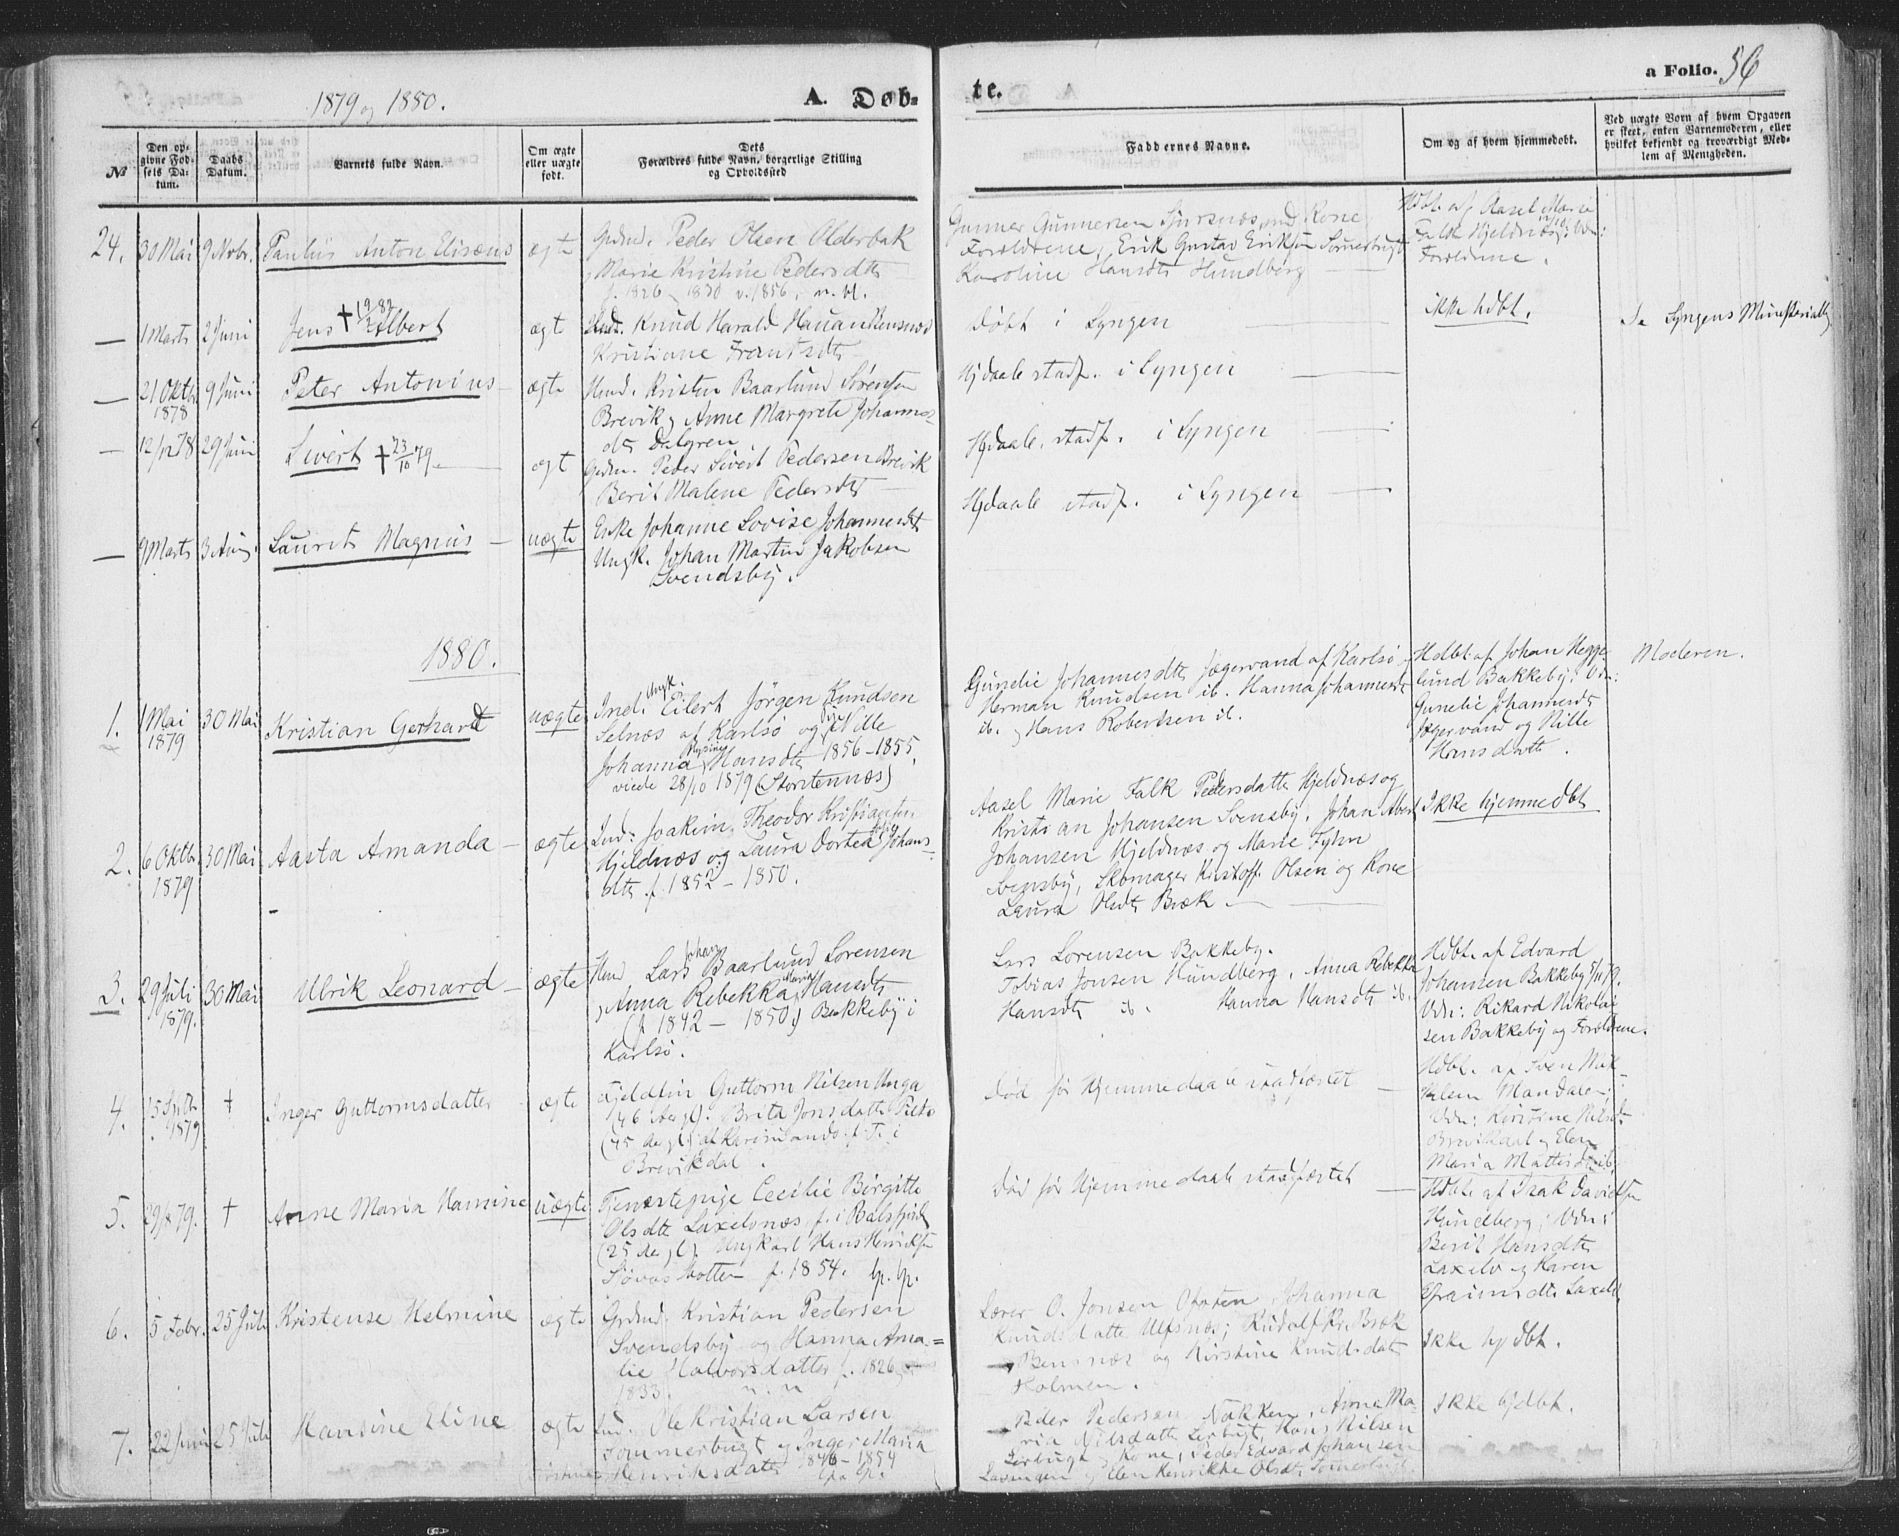 1879 og 1880.
A. Døb-
te.
a Folio. 56
№
Den op-
givne Fød-
sels Da-
tum.
Daabs
Datum.
Barnets fulde Navn.
Om ægte
eller uægte
født.
Dets
Forældres fulde Navn, borgerlige Stilling
og Opholdssted
Faddernes Navne.
Om og af hvem hjemmedøbt.
Ved uægte Børn af hvem Opgaven
er skeet, enten Barnemoderen, eller
hvilket bekjendt og troværdigt Med-
lem af Menigheden.
24.
30 Mai
9 Novbr.
Paulus Anton Elisæus
ægte
Peder Olsen Olderbak
Marie Kristine Pedersdtr
f. 1826 1830 v. 1856.
Gunner Gunnersen Sjursnæs med Kone
Forældrene, Erik Gustav Eriksen
Karoline Hansdtr Hundberg
Hdbt. af Aasel Marie
Falk Hjeldnæs
Forældrene.
—
1 Marts
2 Juni
Jens Albert
ægt
Knud Harald Hauan
Kristiane Frantsdtr
Døbt i Lyngen
ikke hdbt.
Se Lyngens
—
21 Oktbr
1878
9 Juni
Peter Antonius
ægte
Kristen Baarlund Sørensen
Brevik, Anne Margrete Johannes-
dtr Dalgren
Hjdaab stadf. i Lyngen
—
12/12 78
29 Juni
Sivert † 23/10 79.
ægt
Peder Sivert Pedersen Brevik
Berit Malene Pedersdtr
Hjdaab. stadf. i Lyngen
—
9 Marts
3 Aug.
Laurits Magnus
uægte
Enke Johanne Lovise Johannesdtr
Ungk. Johan Martin Jakobsen
Svendsby.
Hjdaab stadf. i Lyngen
1880.
1.
1 Mai
1879
30 Mai
Kristian Gerhard
uægte
Ungk.
Ind. Eilert Jørgen Knudsen
Selnæs af Karlsø og Pige Nille
Johanna Hansdtr 1856 – 1855,
viede 28/10 1879 (Stortennæs)
Gunelie Johannesdtr Jægervand af Karlsø
Herman Knudsen ib. Hanna Johannesdtr
ib. og Hans Robertsen ib.
Hdbt. af Johan Hegge-
lund Bakkeby. Vdn:
Gunelie Johannesdtr
Jægervand og Nille
Hansdatter.
Moderen.
2.
6 Oktbr.
1879
30 Mai
Aasta Amanda
ægte
Ind. Joakim Theodor Kristiansen
Hjeldnæs og Laura Dortea Johans-
dtr f. 1852 – 1850.
Aasel Marie Falk Pedersdatter Hjeldnæs og
Kristian Johansen Svensby, Johan Albert
Johansen Hjeldnæs og Marie Fyhn
Svensby, Skomager Kristoff. Olsen og Kone
Laura Olsdtr Bræk
Ikke hjemmedbt
3.
29 Juli
1879.
30 Mai
Ulrik Leonard
ægte
Johan
Lars Baarlund Sorensen
Maria
Anna Rebekka Hansdtr
(f. 1842 – 1850.) Bakkeby i
Karlsø.
Lars Sorensen Bakkeby.
Tobias Jonsen Hundberg. Anna Rebekka
Hansdtr ib. Hanna Hansdtr ib.
Hdbt. af Edvard
Johansen Bakkeby 5/11 79.
Vdn: Rikard Nikolai
sen Bakkeby og Forældrene.
4.
15 Septbr
1879
†
Inger Guttormsdatter
ægte
Fjeldfin Guttorm Nilsen Unga
Brita Jonsdatter
Brevikdal.
Død før Hjemmedaab stadfæstet
Hdbt. af Sven Mik-
Mandalen;
Vdn: Kirstine Nilsd.
Brevikdal og Elen
Maria Mattisdtr ib.
5.
†
Anne Maria Hamine
uægte
Tjenestepige Cecilie Birgitte
Olsdtr Laxelvnæs, f. i Balsfjord
Ungkarl Hans Henriksen
f. 1854.
Død før Hjemmedaab stadfæstet
Hdbt. af Isak Davidsen
Hundberg; Vdn:
Berit Hansdtr
Laxelv og Karen
Efraimsdtr Laxelv
6.
5 Febr.
25 Juli
Kristense Helmine
ægte
Kristian Pedersen
Svendsby og Hanna Ama-
lie Halvorsdatter f. 1826
1833.
Lærer O. Jonsen Johanna
Knudsdatter Ulfsnæs; Rudolf Kr. Bræk
Bensnæs og Kirstine Knudsdatr
Holmen.
Ikke hjdbt.
7.
22 Juni
25 Juli
Hansine Eline
ægte
Ind. Ole Kristian Larsen
Sommerbugt og Inger Maria
Henriksdatter 1846 – 1854
Peder Pedersen Nakken, Anna Ma-
ria Nilsdatter Lerbugt, Hans Nilsen
Lerbugt og Kone, Peder Edvard Johansen
og Elen Henrikke Olsdtr
Ikke hjdbt.